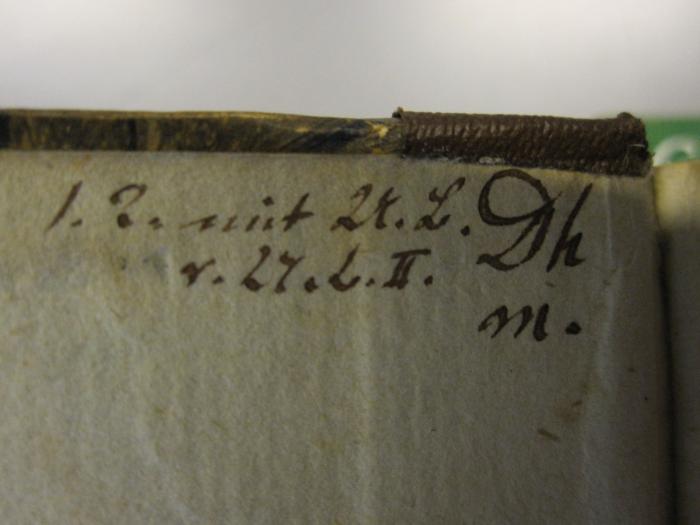 1. 2. mit U. L. Dh
v. L7. L. II.
m.